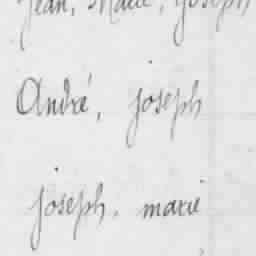 Jean, Marie, Joseph
André, joseph
joseph, marie